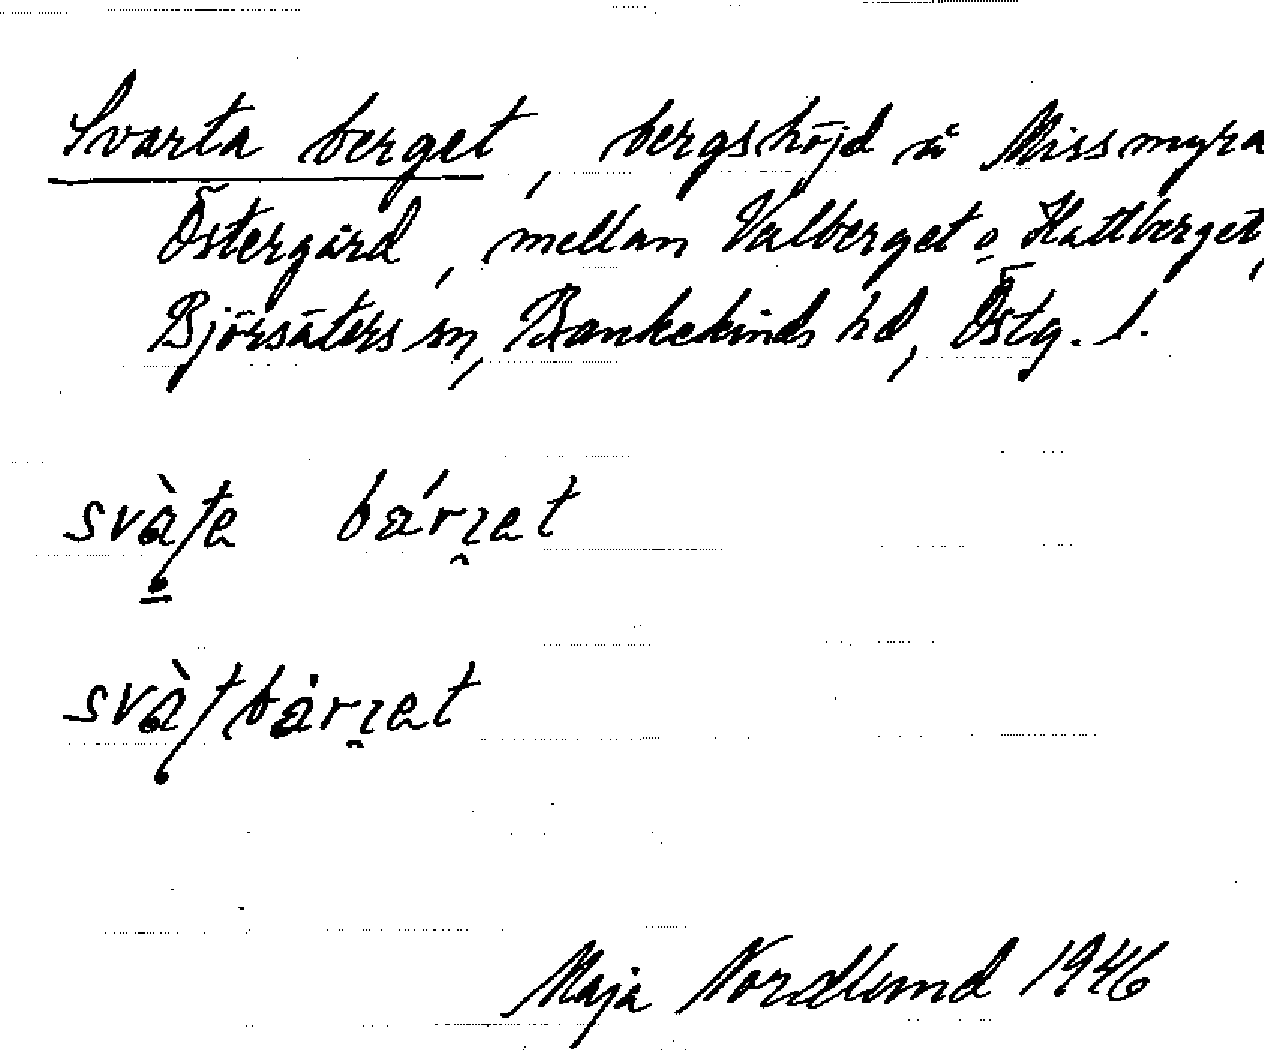 Svarta berget, bergshöjd å Missmyra
Östergård, mellan Valberget o Hattberget,
Björsäters sn, Bankekinds hd, Östg. l.
Maja Nordlund 1946